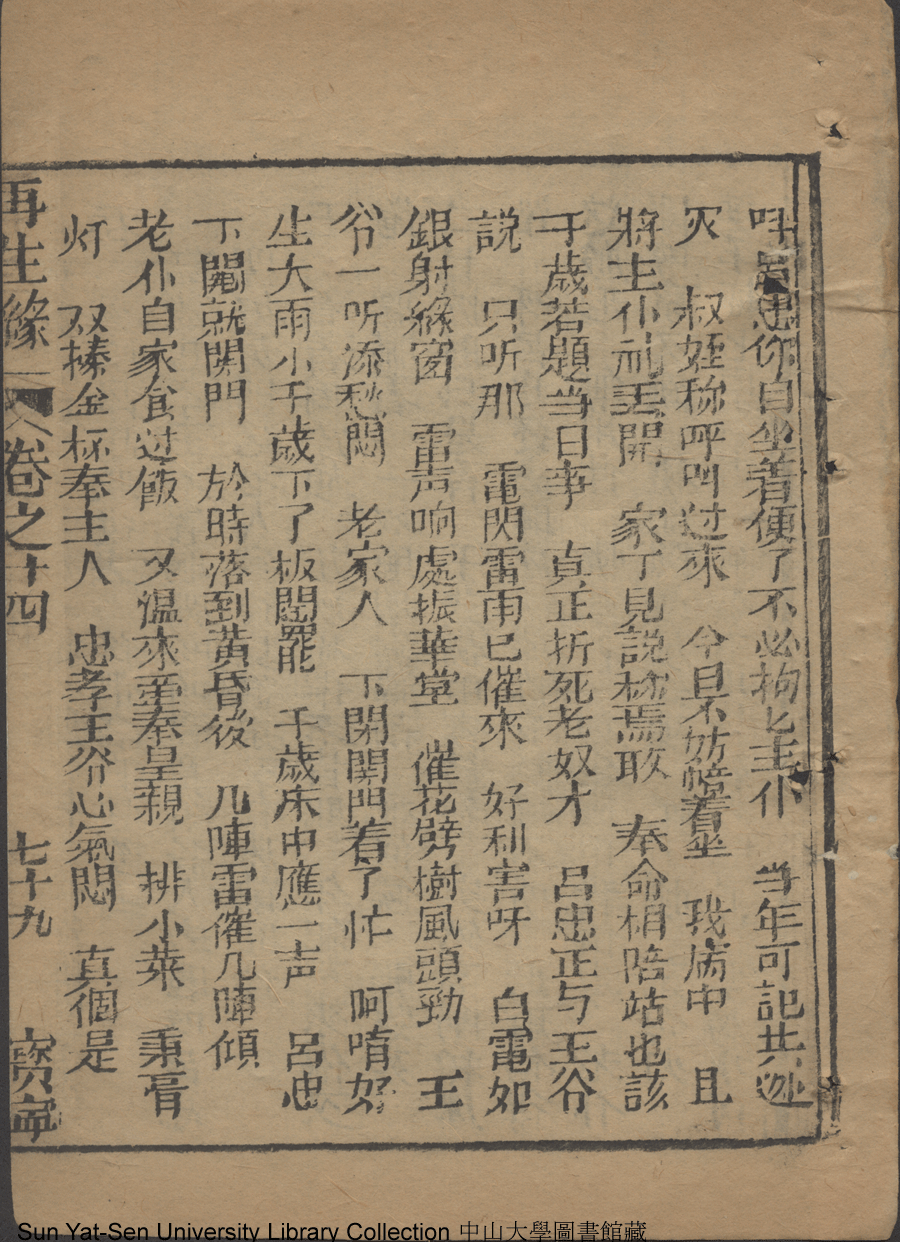 吁呂忠你自坐着便了不必拘匕主仆　当年可記共逃
灾　叔姪称呼叫过來　今旦不妨幨着坐　我病中　且
將主仆礼丟開　家丁見說称焉敢　奉命相陪站也該
千歲若題当日事　真正折死老奴才　呂忠正与王爷
說　只听那　電閃雷雨已催來　好利害呀　白電如
銀射綠窗　雷声响處振華堂　催花劈樹風頭勁　王
爷一听添愁悶　老家人　下閑関門着了忙　呵唷好
生大雨小千歲下了板閮罷　千歲床中應一声　呂忠
下閮就関門　於時落到黃昏後　几陣雷催几陣傾
老仆自家食过飯　又溫來壼奉皇親　排小菜　秉膏
灯　双捧金杯奉主人　忠孝王爷心氣悶　真個是
再生緣　卷之十四　七十九　寳寕
Sun Yat-Sen University Library Collection 中山大學圖書館藏